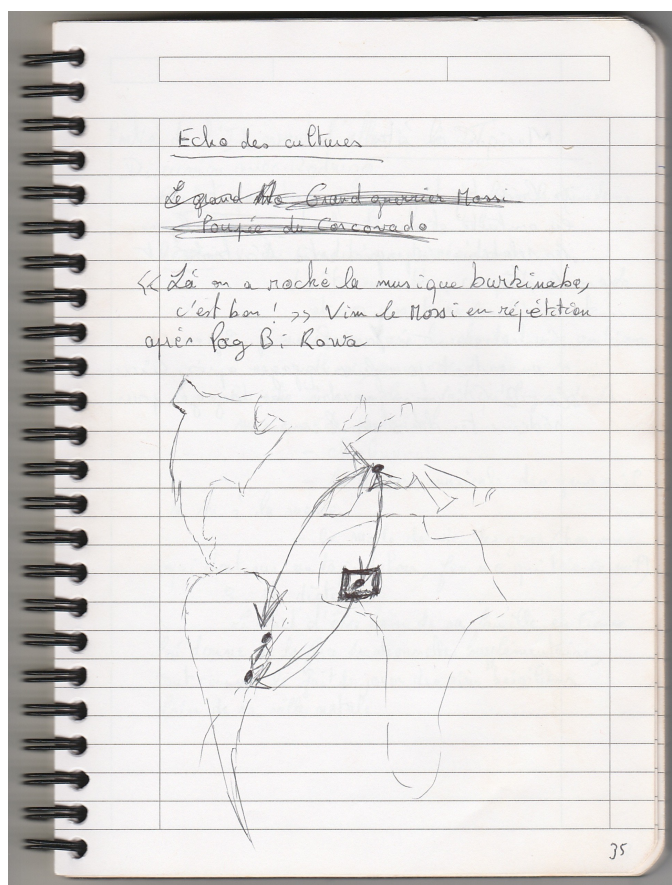 Echo des cultures
Le grand Mo Grand guerrier Mossi
Poupée du Corcovado
<< Là on a rocké la musique burkinabe,
c'est bon ! >> Vim le Mossi en répétition
après Pog Bi Rowa
35